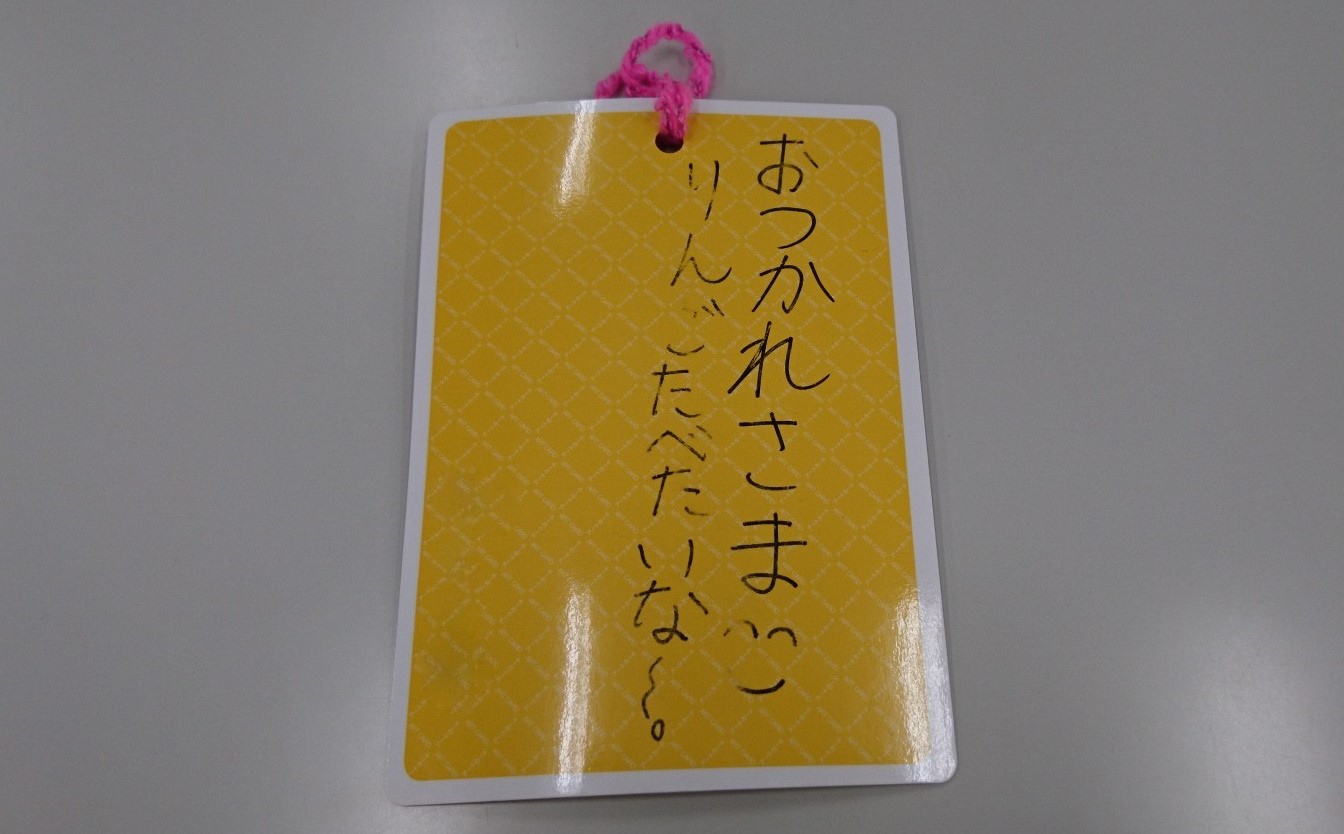 おつかれさま
りんごたべたいな〜。